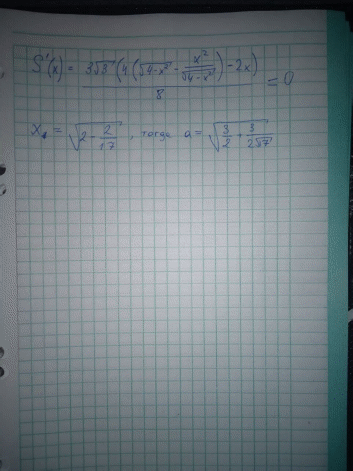 S'(x) = 3√3 (4(√4-x² - x²/√4-x²) - 2x) / 8 = 0
x₁ = √2 - 2/√17, тогда a = √3/2 + 3/2√17